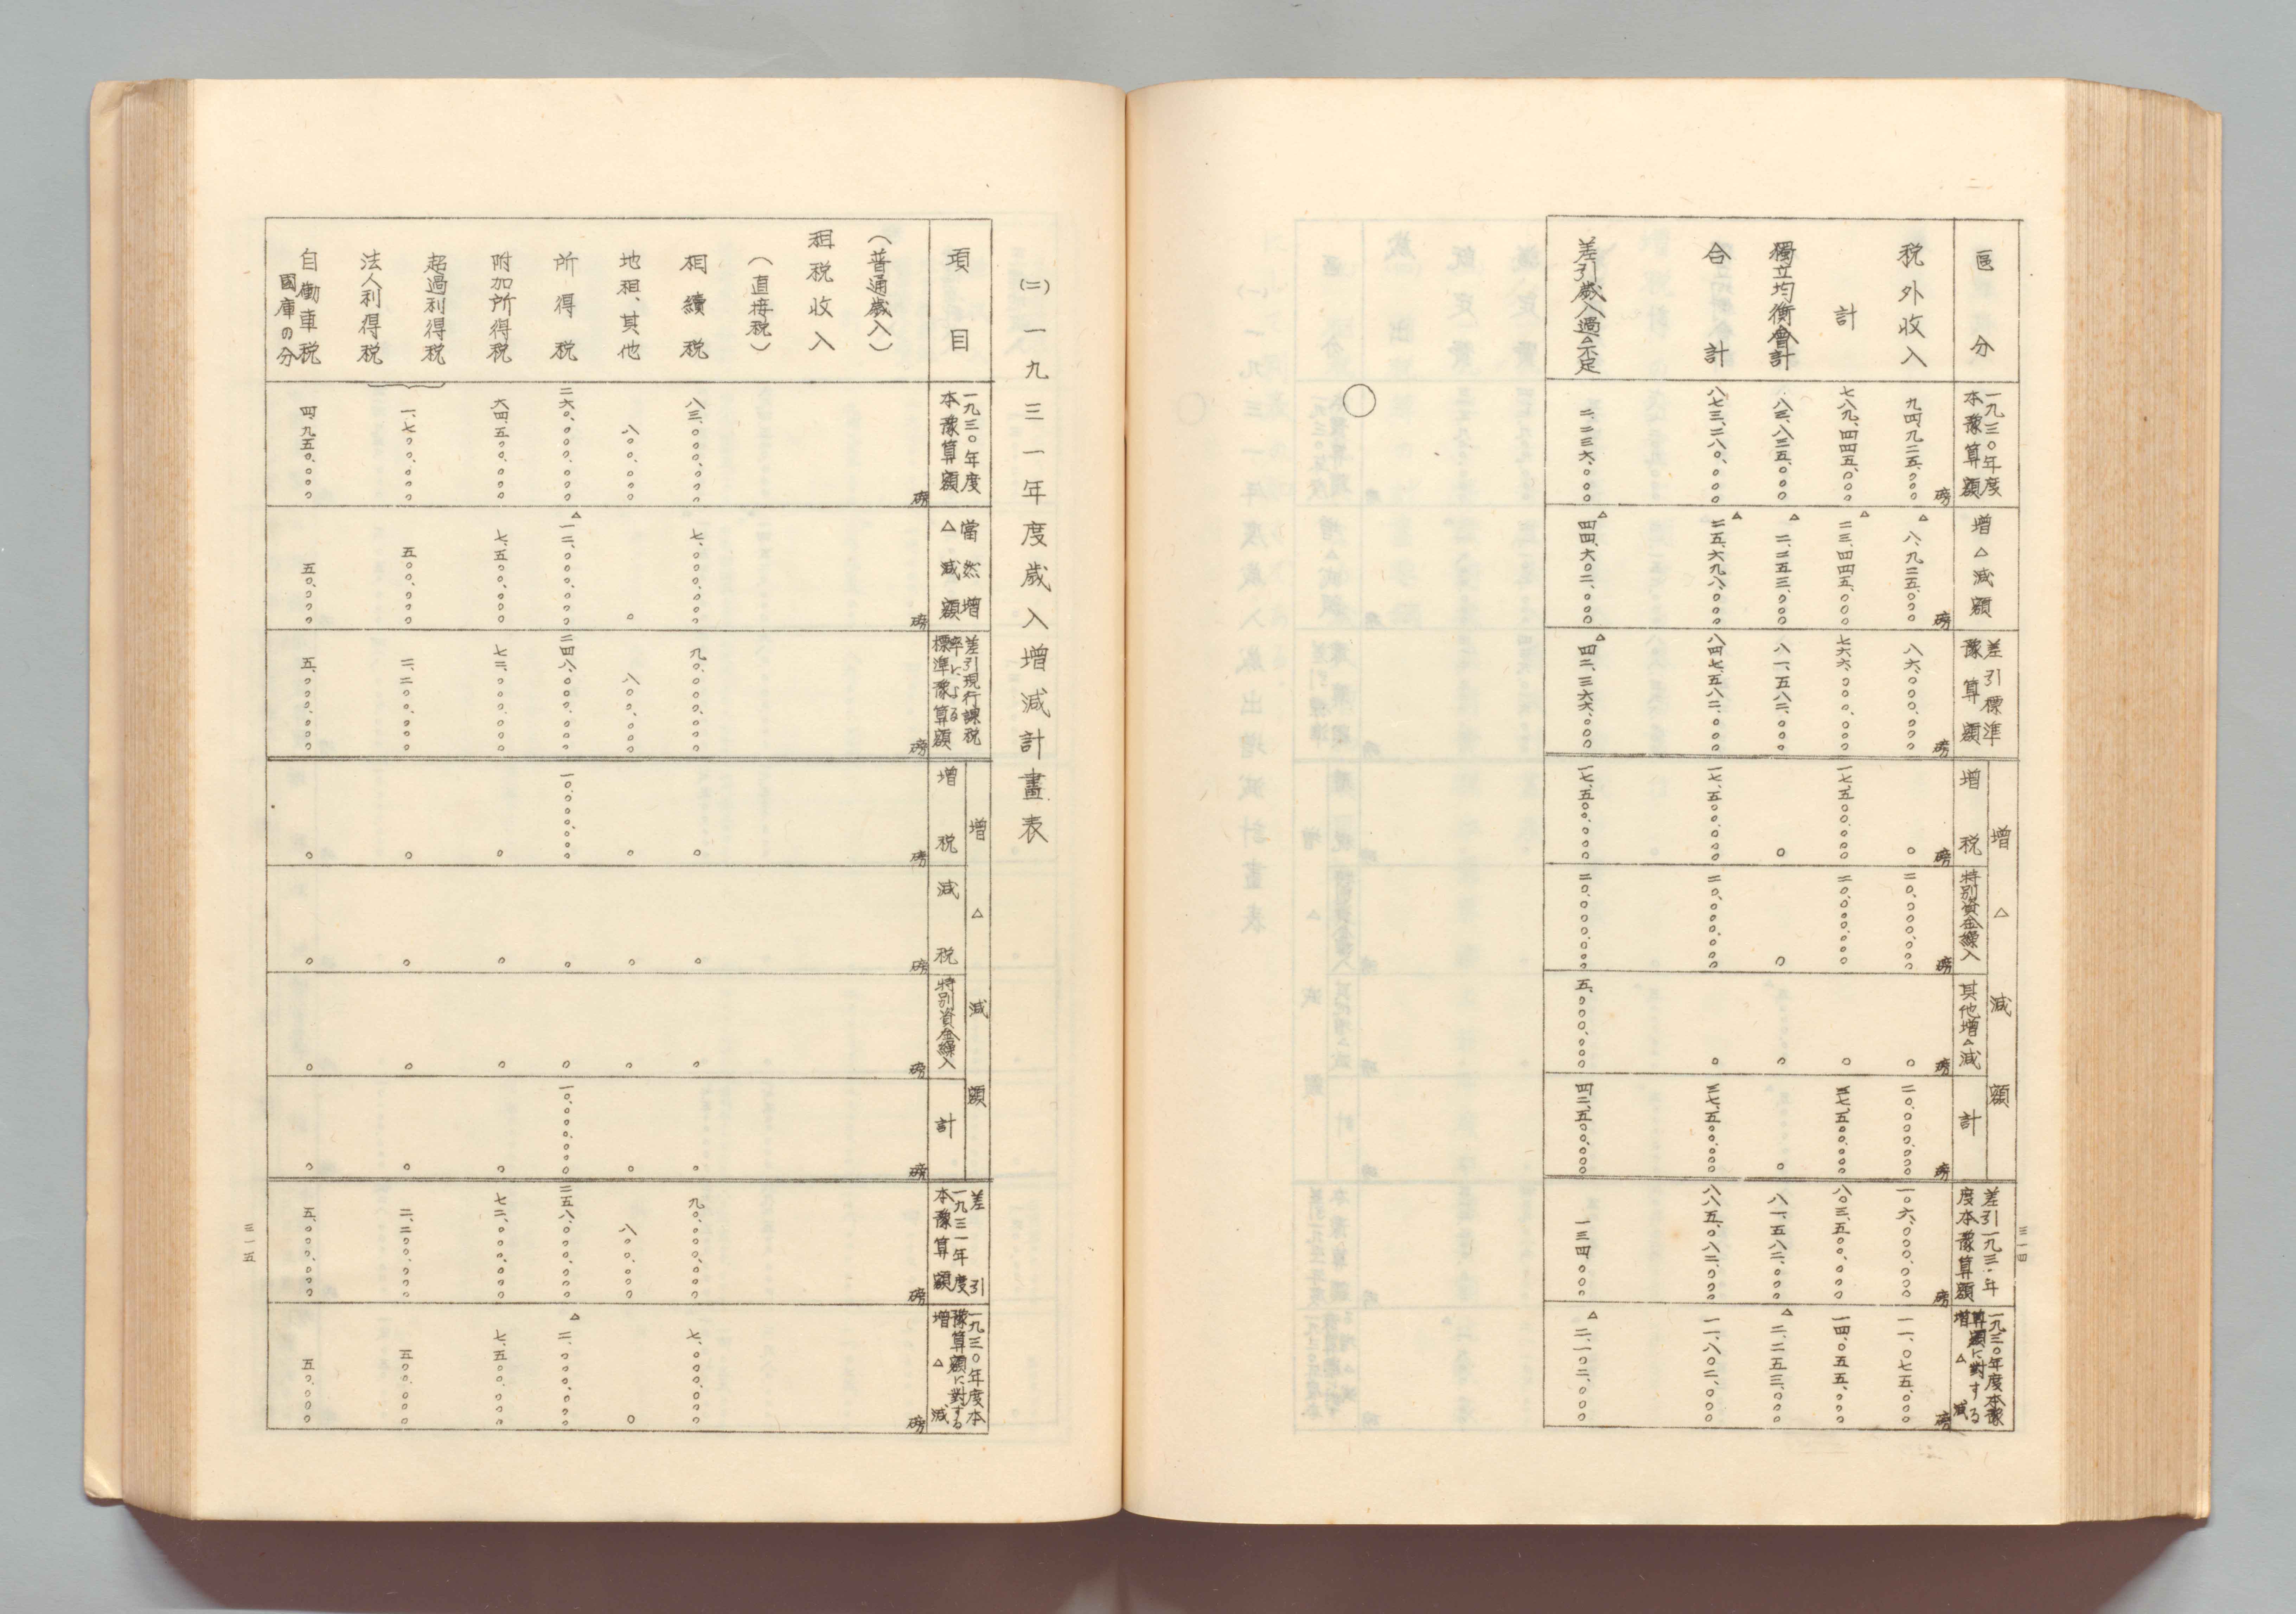 區分
一九三〇年度
本豫算額
增△減額
差引標準
豫算額
增△減額
增稅
特別資金繰入
其他增△減
計
差引一九三一年
度本豫算額
一九三〇年度本豫
算額に對する
增△減
稅外收入 磅 九四、九二五、〇〇〇 磅 △八、九二五、〇〇〇 磅 八六、〇〇〇、〇〇〇 磅 〇 磅 二〇、〇〇〇、〇〇〇 磅 〇 磅 二〇、〇〇〇、〇〇〇 磅 一〇六、〇〇〇、〇〇〇 磅 一一、〇七五、〇〇〇
計 七八九、四四五、〇〇〇 △二三、四四五、〇〇〇 七六六、〇〇〇、〇〇〇 一七、五〇〇、〇〇〇 二〇、〇〇〇、〇〇〇 〇 三七、五〇〇、〇〇〇 八〇三、五〇〇、〇〇〇 一四、〇五五、〇〇〇
獨立均衡會計 八三、八三五、〇〇〇 △二、二五三、〇〇〇 八一、五八二、〇〇〇 〇 〇 〇 〇 八一、五八二、〇〇〇 △二、二五三、〇〇〇
合計 八七三、二八〇、〇〇〇 △二五、六九八、〇〇〇 八四七、五八二、〇〇〇 一七、五〇〇、〇〇〇 二〇、〇〇〇、〇〇〇 〇 三七、五〇〇、〇〇〇 八八五、〇八二、〇〇〇 一一、八〇二、〇〇〇
差引歲入過△不足 二、二三六、〇〇〇 △四四、六〇二、〇〇〇 △四二、三六六、〇〇〇 一七、五〇〇、〇〇〇 二〇、〇〇〇、〇〇〇 五、〇〇〇、〇〇〇 四二、五〇〇、〇〇〇 一三四、〇〇〇 △二、一〇二、〇〇〇
三一四
(二) 一九三一年度歲入增減計畫表
項目
一九三〇年度
本豫算額
當然增
△減額
差引現行課稅
率による
標準豫算額
增△減額
增稅
減稅
特別資金繰入
計
差引
一九三一年度
本豫算額
一九三〇年度本
豫算額に對する
增△減
(普通歲入) 磅 磅 磅 磅 磅 磅 磅 磅 磅
租稅收入
(直接稅)
相續稅 八三、〇〇〇、〇〇〇 七、〇〇〇、〇〇〇 九〇、〇〇〇、〇〇〇 〇 〇 〇 〇 九〇、〇〇〇、〇〇〇 七、〇〇〇、〇〇〇
地租、其他 八〇〇、〇〇〇 〇 八〇〇、〇〇〇 〇 〇 〇 〇 八〇〇、〇〇〇 〇
所得稅 二六〇、〇〇〇、〇〇〇 △一二、〇〇〇、〇〇〇 二四八、〇〇〇、〇〇〇 一〇、〇〇〇、〇〇〇 〇 〇 一〇、〇〇〇、〇〇〇 二五八、〇〇〇、〇〇〇 △二、〇〇〇、〇〇〇
附加所得稅 六四、五〇〇、〇〇〇 七、五〇〇、〇〇〇 七二、〇〇〇、〇〇〇 〇 〇 〇 〇 七二、〇〇〇、〇〇〇 七、五〇〇、〇〇〇
超過利得稅
法人利得稅 一、七〇〇、〇〇〇 五〇〇、〇〇〇 二、二〇〇、〇〇〇 〇 〇 〇 〇 二、二〇〇、〇〇〇 五〇〇、〇〇〇
自働車稅
國庫の分 四、九五〇、〇〇〇 五〇、〇〇〇 五、〇〇〇、〇〇〇 〇 〇 〇 〇 五、〇〇〇、〇〇〇 五〇、〇〇〇
三一五